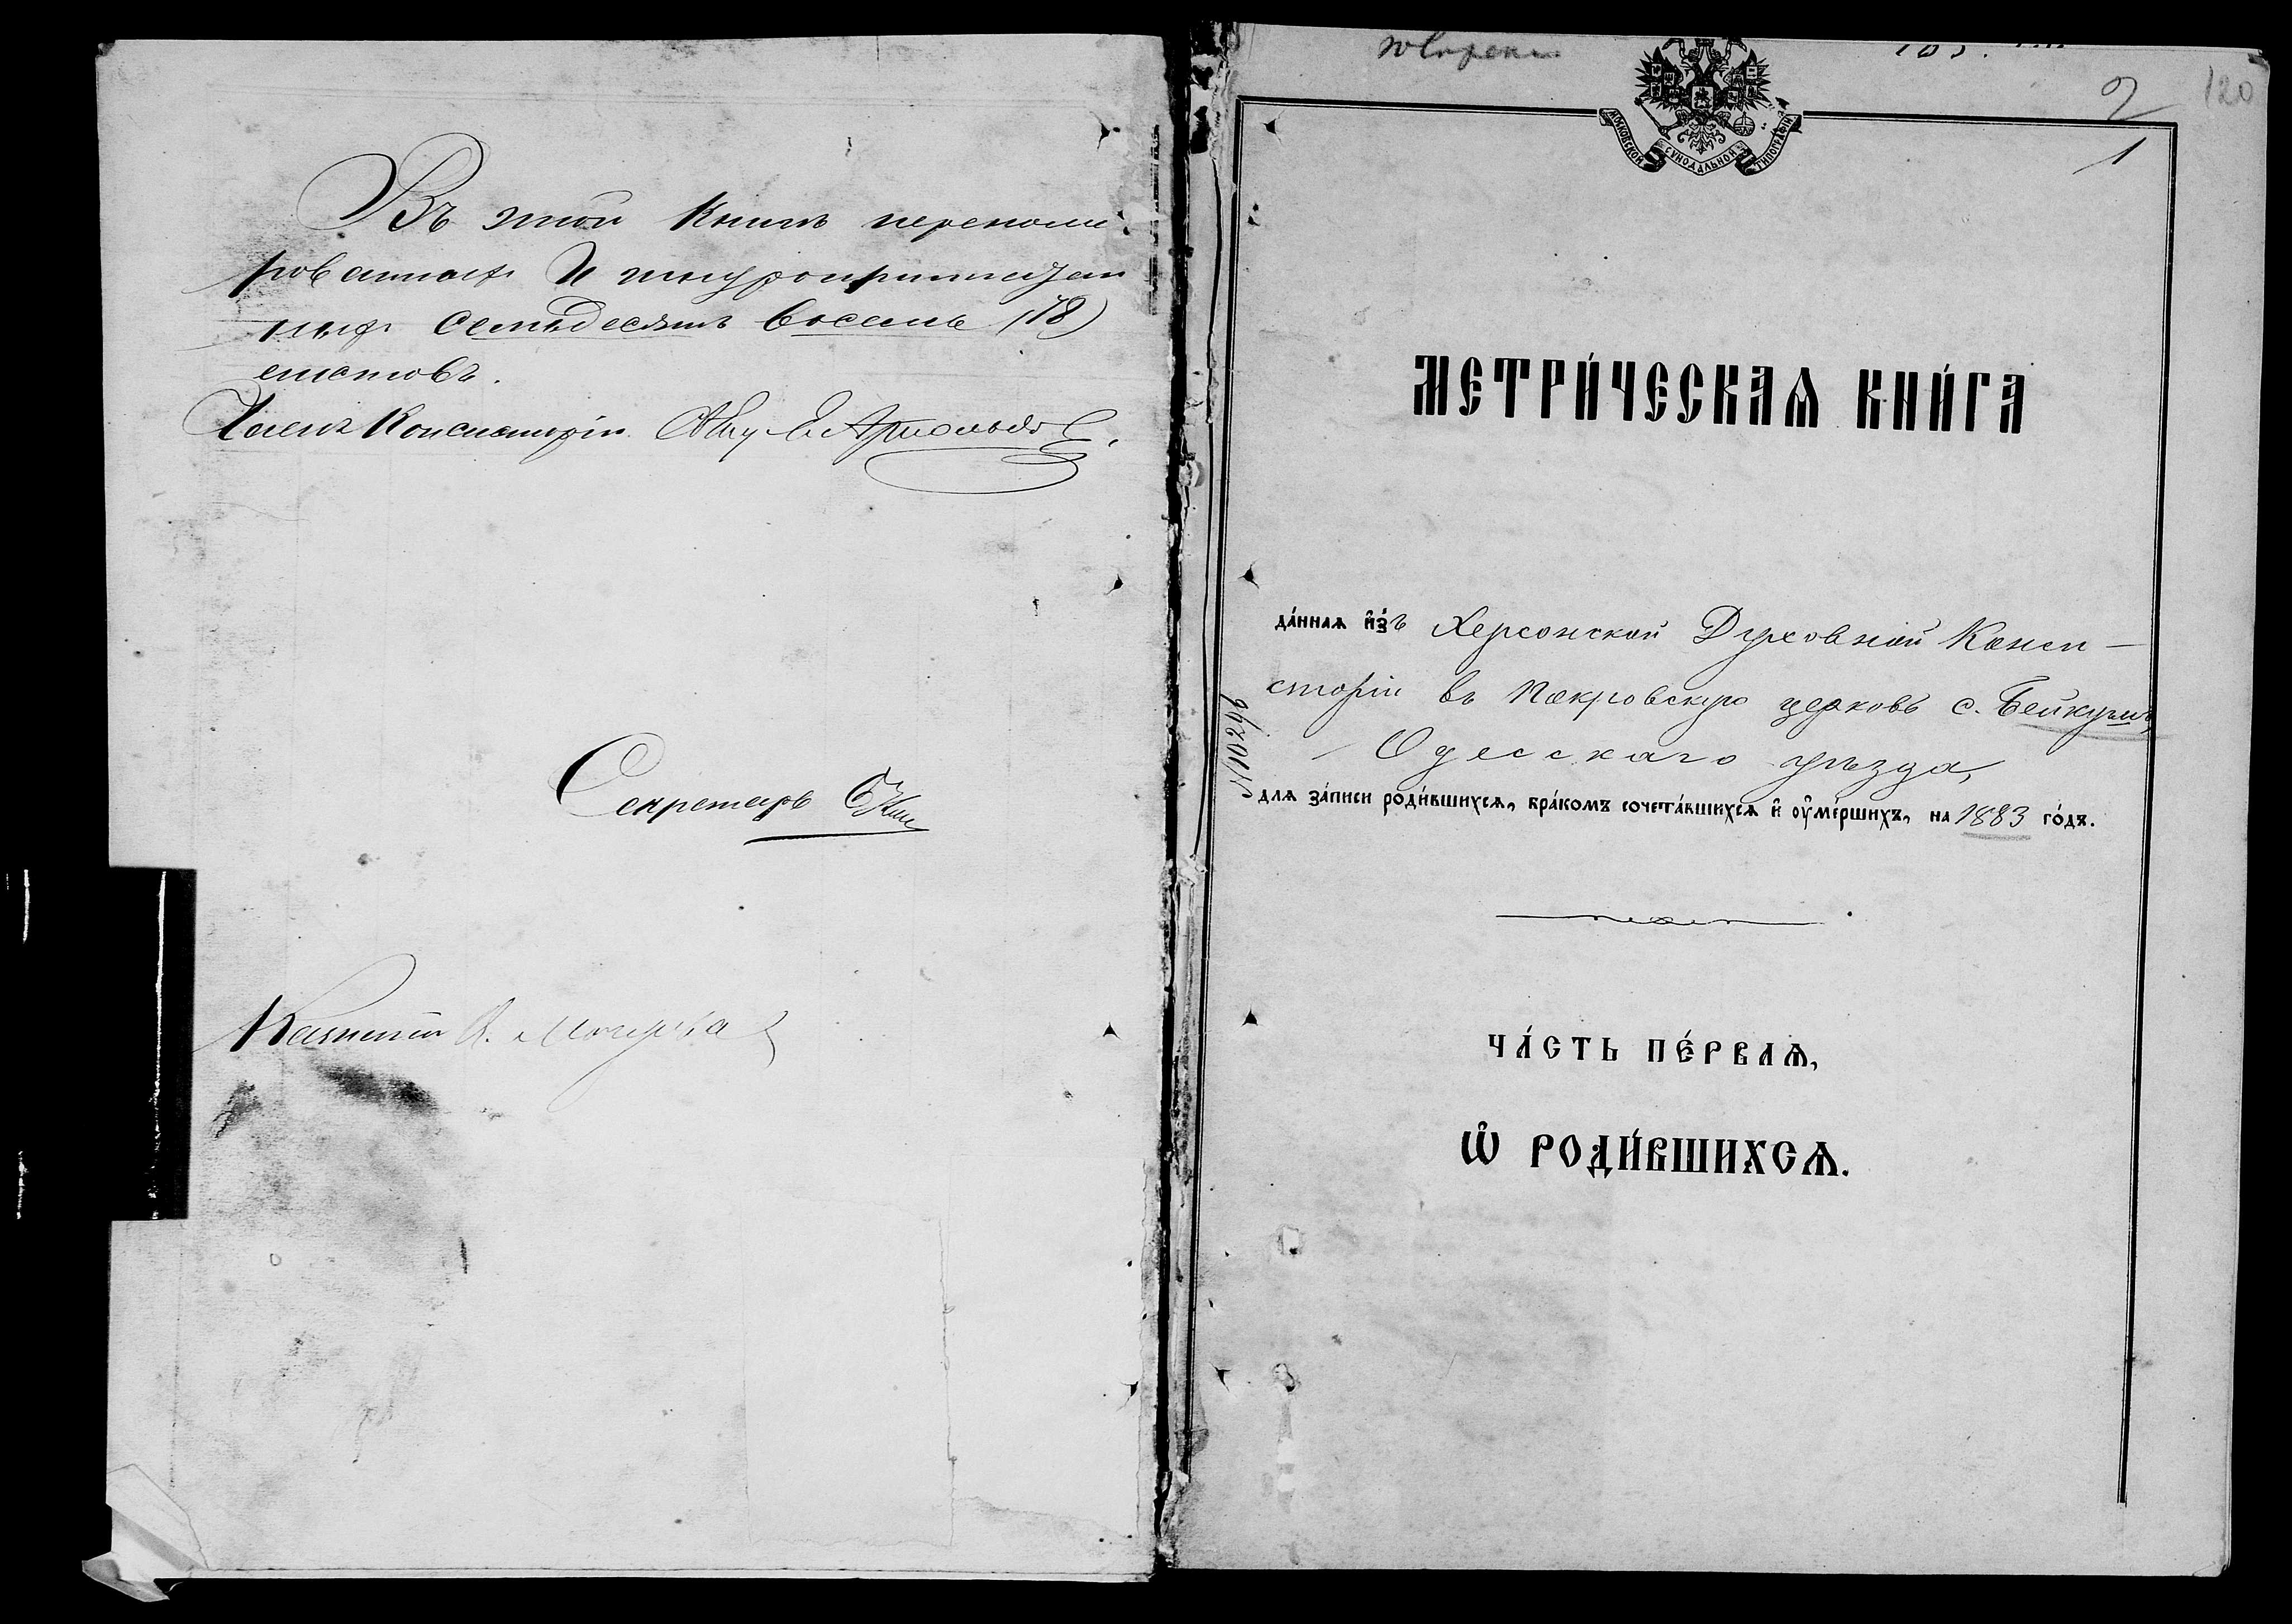 Въ этой книгѣ перенуме-
рованныхъ и шнуроприпечатан-
ныхъ семьдесятъ восемь (78)
листовъ.
Членъ Консисторіи
Секретарь
2
120
1
МОСКОВСКОЙ СѴНОДАЛЬНОЙ ТИПОГРАФІИ
МЕТРИ́ЧЕСКАѦ КНИ́ГА
да́ннаѧ и҆зъ Херсонской Духовной Конси-
сторіи въ Покровскую церковь с. Бейкушъ
Одесскаго уѣзда,
№ 10246
длѧ за́писи роди́вшихсѧ, бра́комъ сочета́вшихсѧ и҆ оу҆ме́ршихъ, на 1883 го́дъ.
ЧА́СТЬ ПЕ́РВАѦ,
Ѡ҆ РОДИ́ВШИХСѦ.